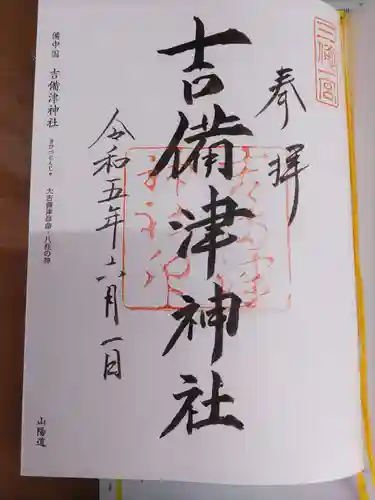 三備一宮
奉拝
吉備津神社
令和五年六月一日
備中国 吉備津神社
きびつじんじゃ
大吉備津彦命・八柱の神
山陽道